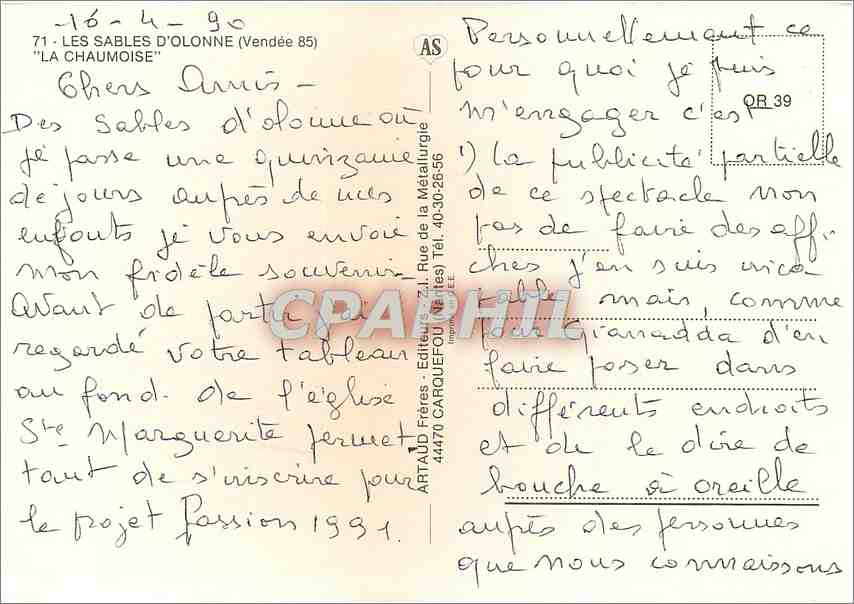 16-4-90
71 - LES SABLES D'OLONNE (Vendée 85)
"LA CHAUMOISE"
Chers Amis -
Des Sables d'olonne où
je passe une quinzaine
de jours auprès de mes
enfants je vous envoie
mon fidèle souvenir -
Avant de partir j'ai
regardé votre tableau
au fond de l'église
Ste Marguerite permet
tant de s'inscrire pour
le projet Passion 1991.
ARTAUD Frères - Editeurs - Z.I. Rue de la Métallurgie
44470 CARQUEFOU (Nantes) Tél. 40-30-26-56
Imprimé en C.E.E.
AS
QR 39
Personnellement ce
pour quoi je puis
m'engager c'est
1) la publicité partielle
de ce spectacle non
pas de faire des affi-
ches j'en suis inca
pable mais, comme
pour d'en
faire poser dans
différents endroits
et de le dire de
bouche à oreille
auprès des personnes
que nous connaissons
CPAPHIL